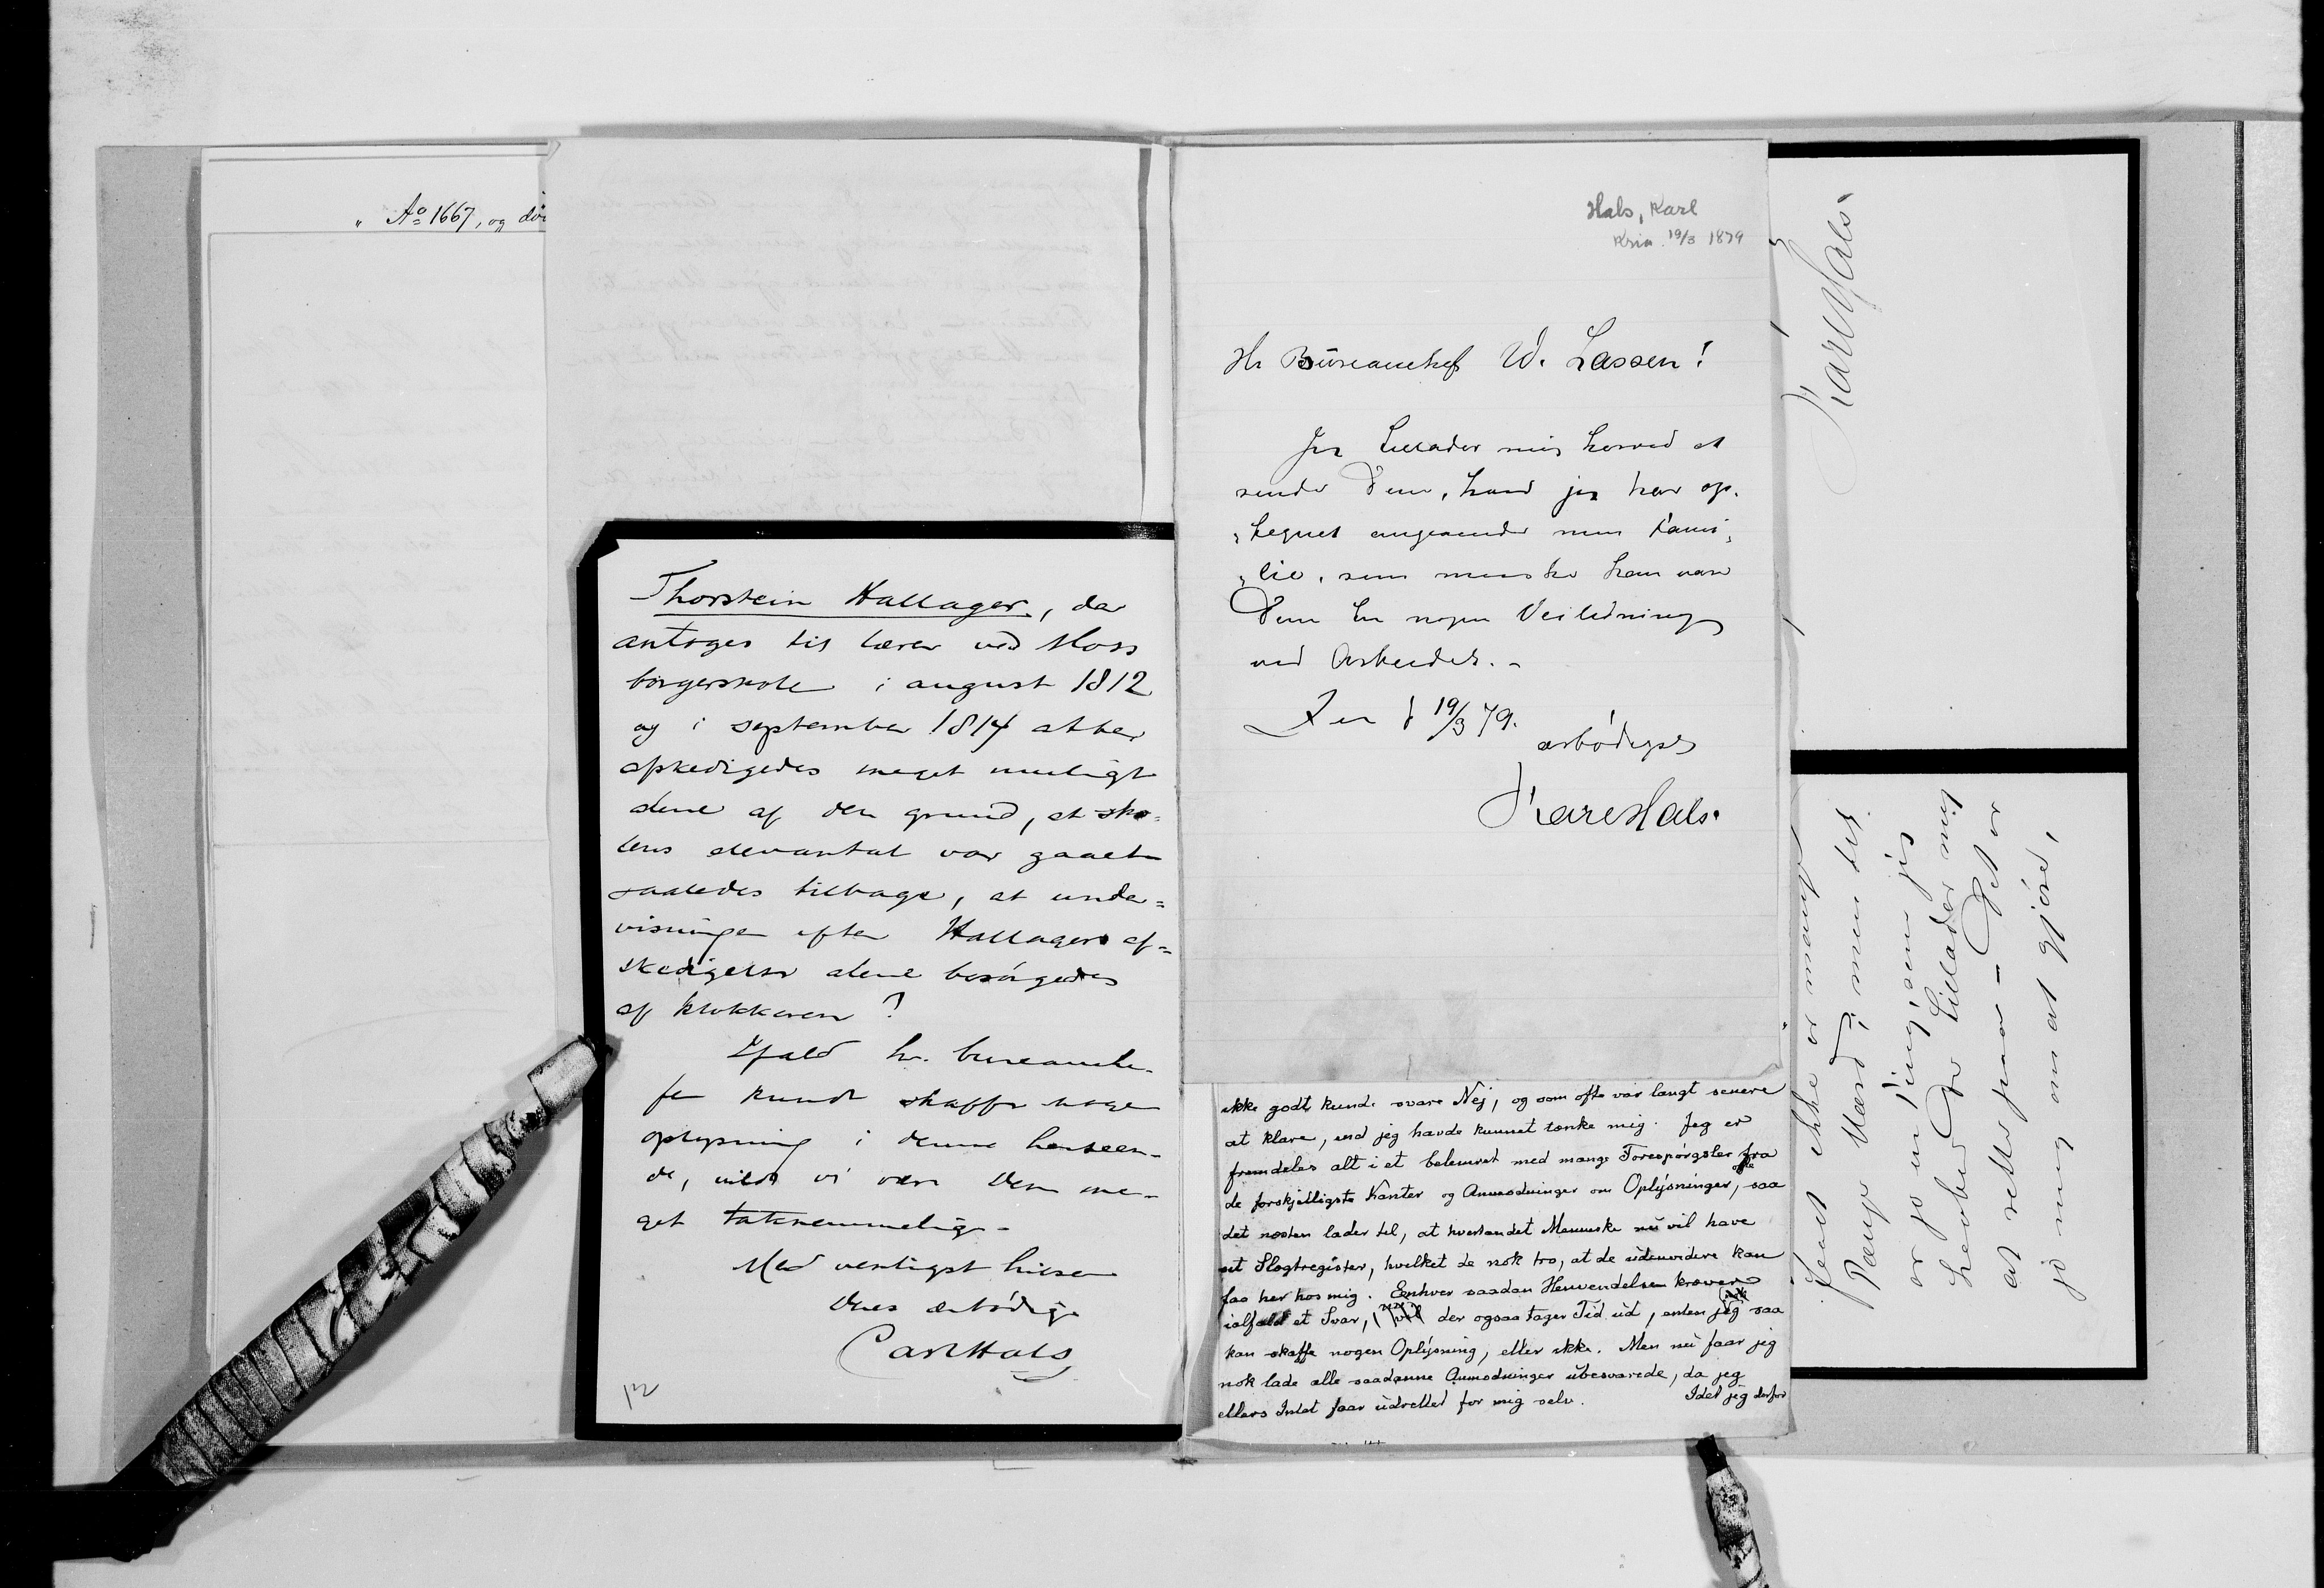 „ Aº 1667, og
Thorstein Hallager, der
antoges til lærer ved Moss
borgerskole i august 1812
og i september 1814 atter
afskedigedes meget muligt
alene af den grund, at sko=
lens elevantal var gaaet
saaledes tilbage, at under=
visningen efter Hallagers af=
skedigelse alene besørgedes
af klokkeren?
Ifald hr. bureauche-
fen kunde skaffe nogen
oplysning i denne henseen-
de, vilde vi være Dem me-
get taknemmelig.
Med venligst hilsen
Deres ærbødige
Carl Hals
Hals, Karl
Kria. 19/3 1879
Hr Bureauchef W. Lassen!
Jeg tillader mig herved at
sende Dem, hvad jeg har op-
tegnet angaaende min Fami-
lie, som maaske kan være
Dem til nogen Veiledning
ved Arbeidet. -
19/3 79.
ærbødigst
Karl Hals.
ikke godt kunde svare Nej, og som ofte var langt senere
at klare, end jeg havde kunnet tænke mig. Jeg er
fremdeles alt i et belemret med mange Forespørgsler fra
de forskjelligste Kanter og Anmodninger om Oplysninger, saa
det næsten lader til, at hvertandet Menneske nu vil have
sit Slægtregister, hvilket de nok tro, at de udenvidere kan
faa her hos mig. Enhver saadan Henvendelse kræver
ialfald et Svar, der ogsaa tager Tid ud, enten jeg saa
kan skaffe nogen Oplysning, eller ikke. Men nu faar jeg
nok lade alle saadanne Anmodninger ubesvarede, da jeg
ellers Intet faar udrettet for mig selv. Idet jeg derfor
Karl Hals.
ikke er mange
Penge Værd, men det
er jo en Ting, som jeg
De tillader mig
at rette paa - Det er
jo mig om at gjøre,